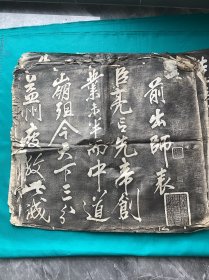 前出師表
臣亮言先帝創
業未半而中道
崩殂今天下三分
益州疲敝